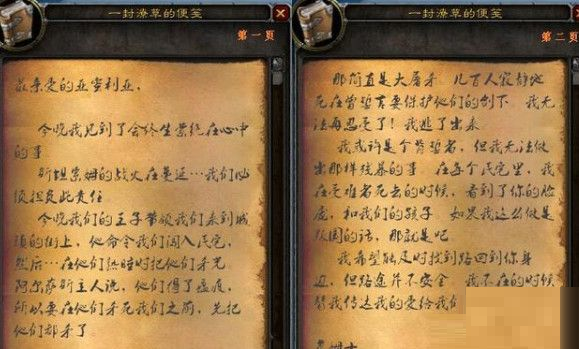 一封潦草的便笺
第一页
最亲爱的亚蜜利亚,
今晚我见到了会终生萦绕在心中
的事
斯坦索姆的战火在蔓延…我们必
须担负此责任
今晚我们的王子带领我们来到城
镇的街上,他命令我们闯入民宅,
然后…在他们熟睡时把他们杀光
阿尔萨斯主人说,他们得了瘟疫,
所以要在他们杀死我们之前,先把
他们都杀了
一封潦草的便笺
第二页
那简直是大屠杀。几百人寂静地
死在曾誓言要保护他们的剑下。我无
法再忍受了!我逃了出来
我或许是个背誓者,但我无法做
出那样残暴的事。在每个民宅里,我
在受难者死去的时候,看到了你的脸
庞,和我们的孩子。如果我这么做是
叛国的话,那就是吧
我希望能及时找到路回到你身
边,但路途并不安全。我不在的时候
替我传达我的爱给我们